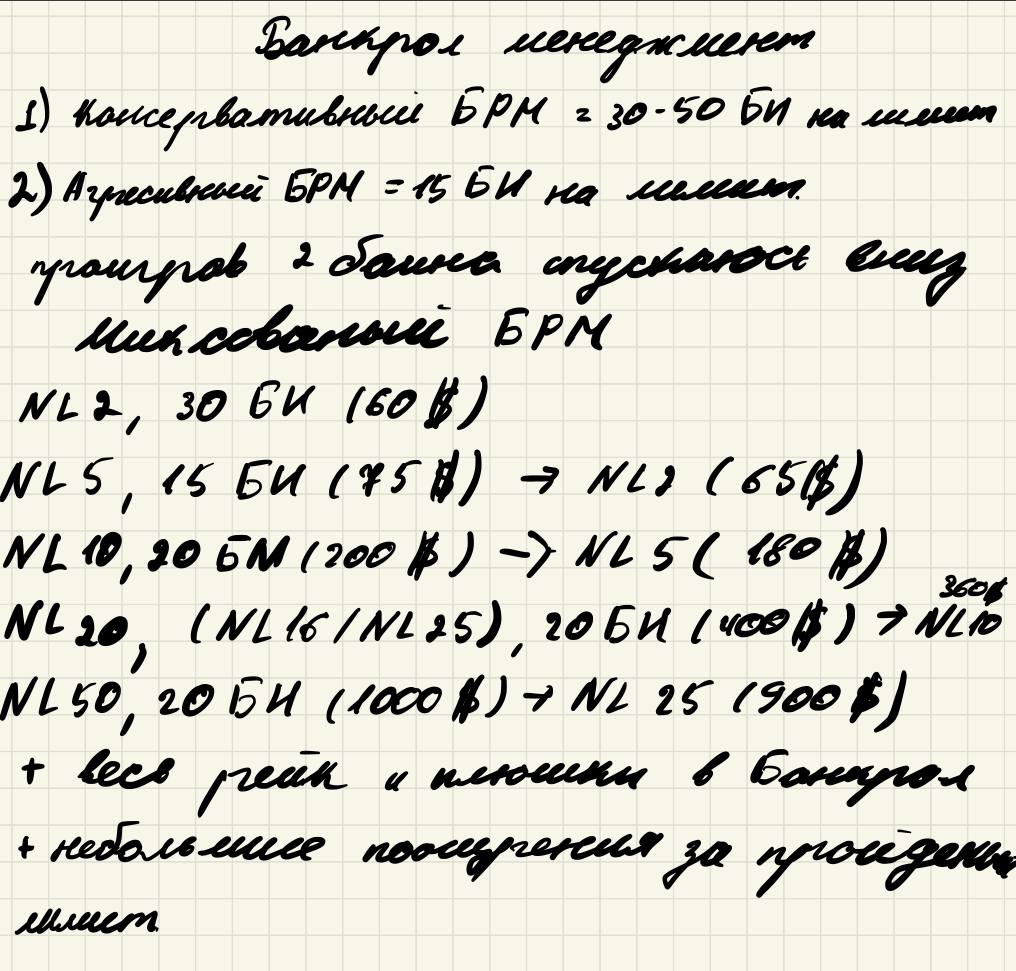 Банкрол менеджмент
1) Консервативный БРМ = 30-50 БИ на лимит
2) Агресивный БРМ = 15 БИ на лимит.
проигров 2 баина спускаюсь вниз
Миксованый БРМ
NL2, 30 БИ (60$)
NL5, 15 БИ (75$) → NL2 (65$)
NL10, 20 БИ (200$) → NL5 (180$)
360$
NL20, (NL16/NL25), 20 БИ (400$) → NL10
NL50, 20 БИ (1000$) → NL25 (900$)
+ весь рейк и плюшки в Банкрол
+ небольшие поощрения за пройденый
лимит